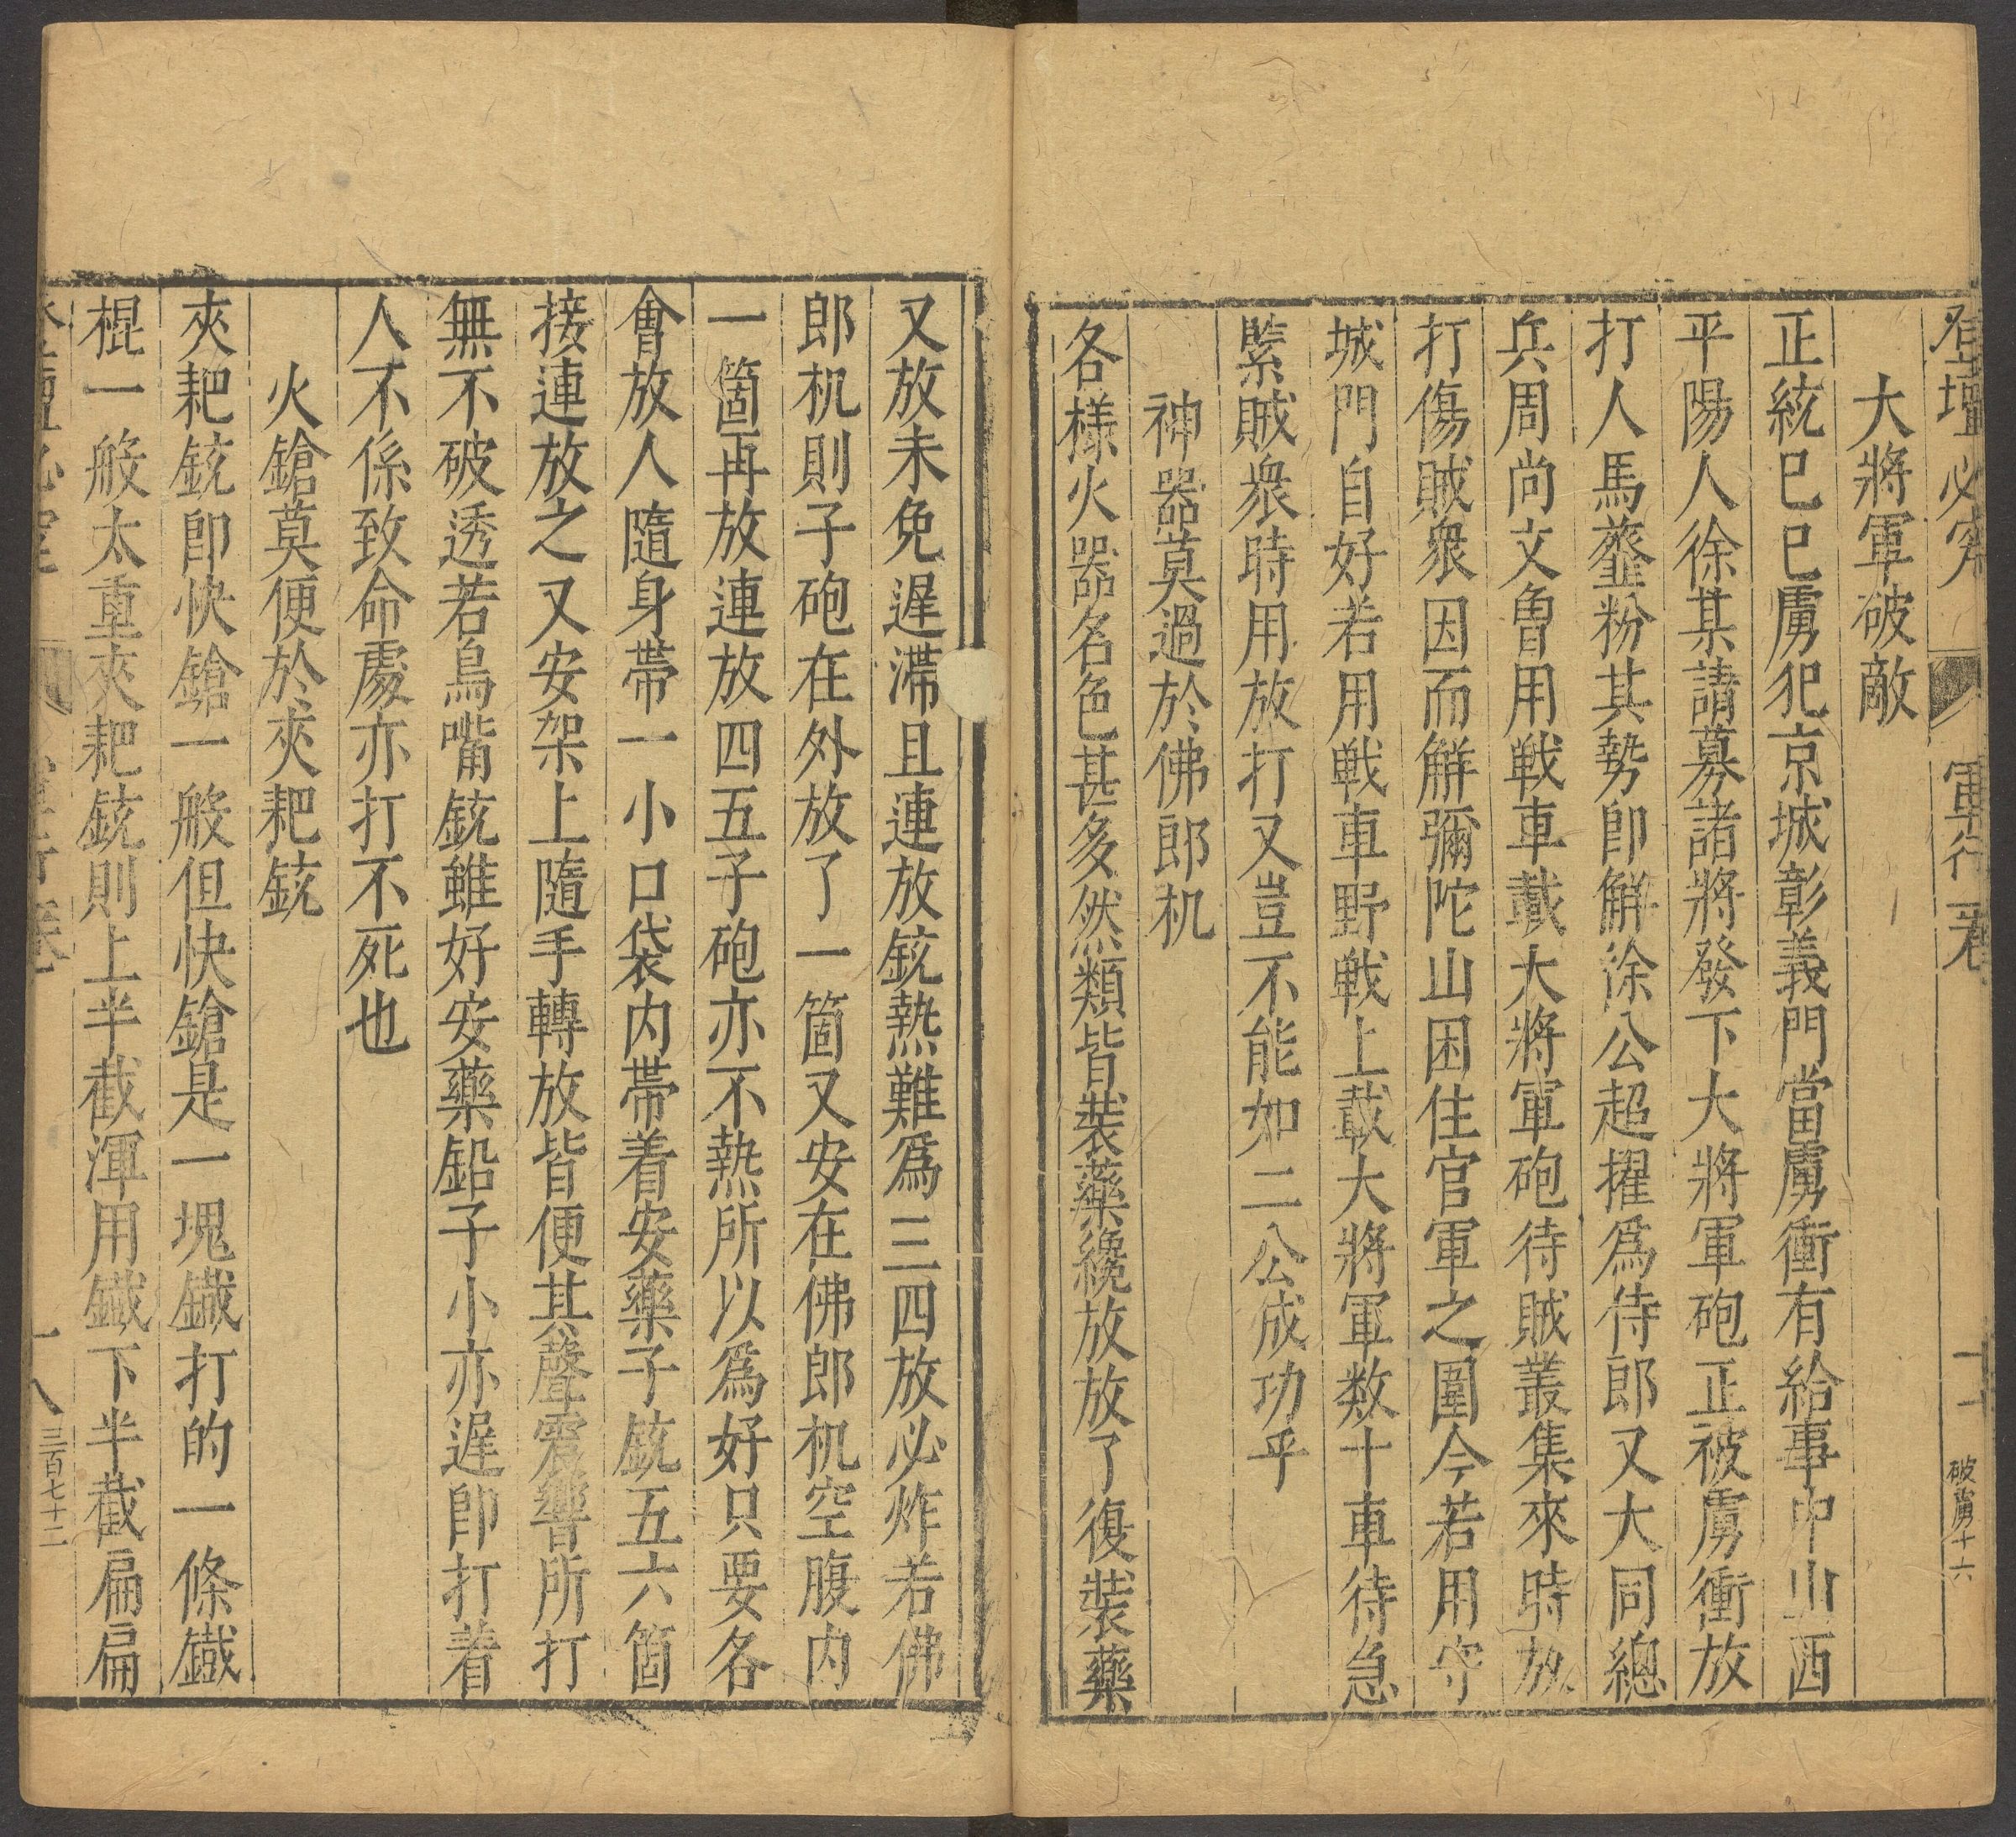 登壇必究 軍行一卷 破虜十六
大將軍破敵
正統巳巳虜犯京城彰義門當虜衝有給事中山西
平陽人徐某請募諸將發下大將軍砲正被虜衝放
打人馬虀粉其勢即解徐公超擢爲侍郎又大同總
兵周尚文魯用戰車載大將軍砲待賊叢集來時放
打傷賊衆因而解彌陀山困住官軍之圍今若用守
城門自好若用戰車野戰上載大將軍数十車待急
緊賊衆時用放打又豈不能如二公成功乎
神器莫過於佛郎机
各樣火器名色甚多然類皆裝藥纔放放了復裝藥
又放未免遲滯且連放銃熱難爲三四放必炸若佛
郎机則子砲在外放了一箇又安在佛郎机空腹内
一箇再放連放四五子砲亦不熱所以爲好只要各
會放人隨身帶一小口袋内帶着安藥子銃五六箇
接連放之又安架上隨手轉放皆便其聲震響所打
無不破透若鳥嘴銃雖好安藥鉛子小亦遲即打着
人不係致命處亦打不死也
火鎗莫便於夾耙銃
夾耙銃即快鎗一般但快鎗是一塊鐵打的一條鐵
棍一般太重夾耙銃則上半截渾用鐵下半截扁扁
十八 三百七十二